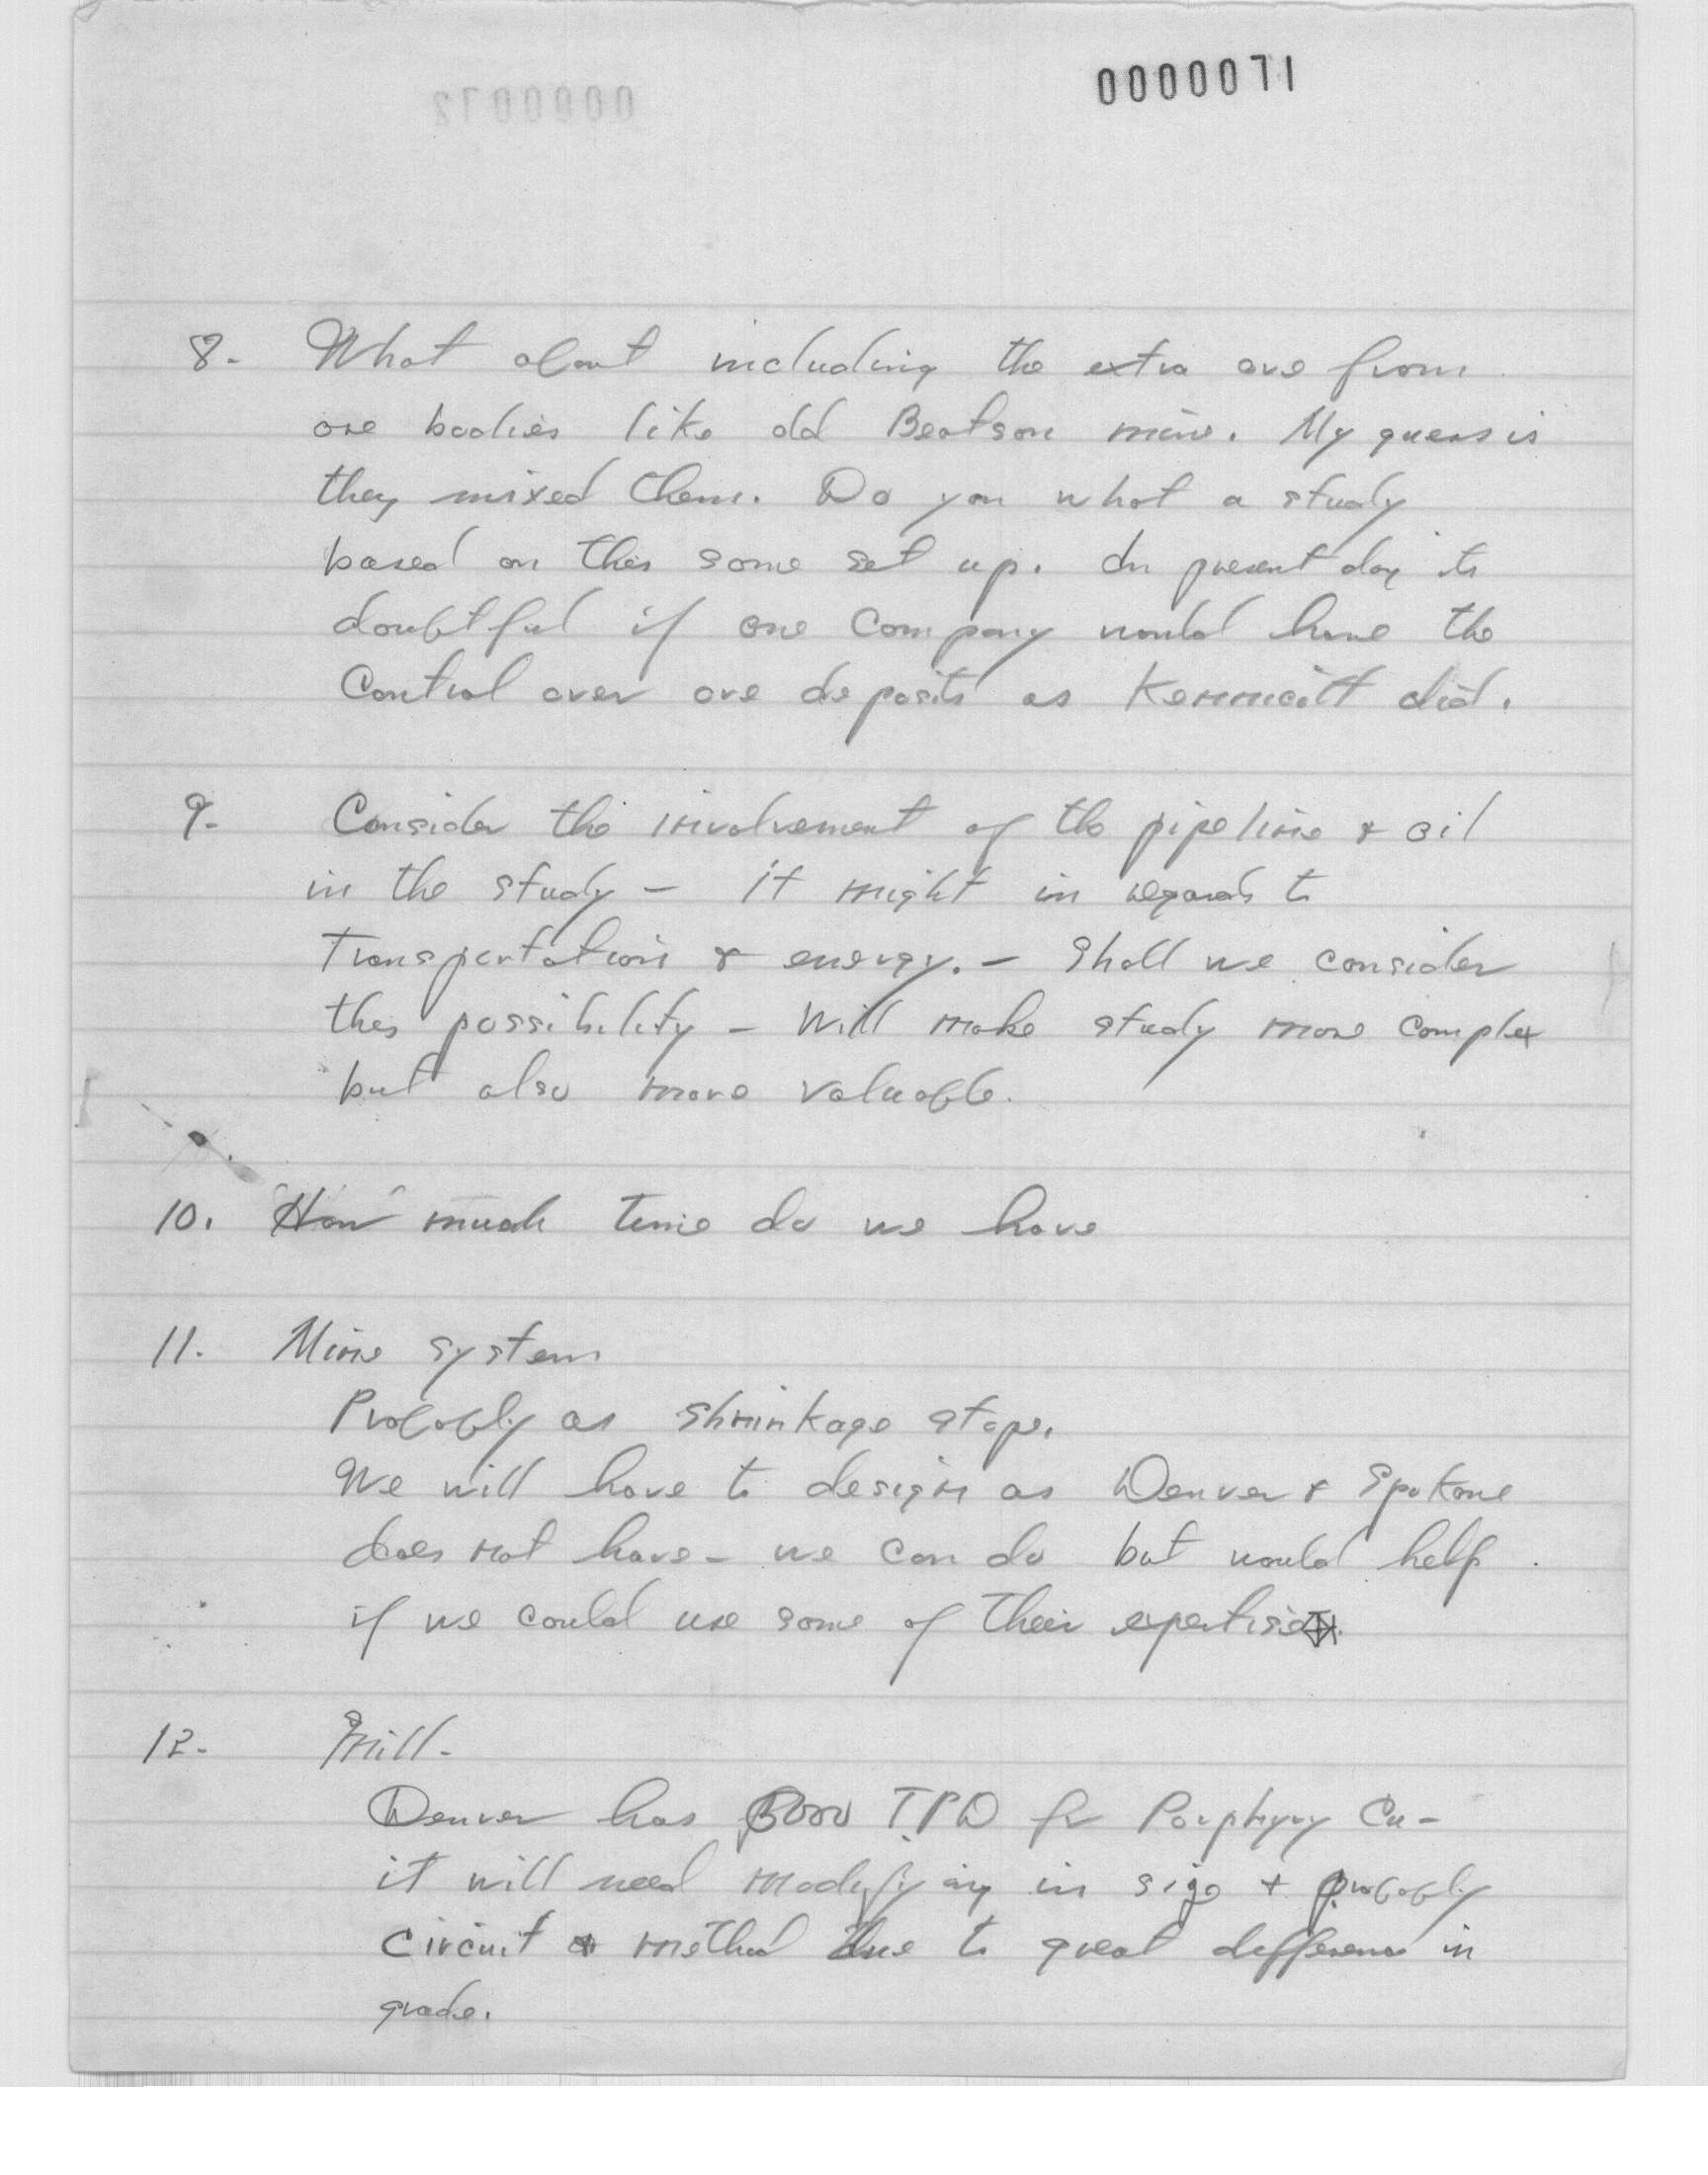 0000071
8- What about including the extra ore from
ore bodies like old Beatson mine. My guess is
they mixed them. Do you what a study
based on this same set up. In present day its
doubtful if one company would have the
Control over ore deposits as Kennicott did.
9- Consider the involvement of the pipeline & oil
in the study - it might in regards to
Transportation & energy. - Shall we consider
this possibility - Will make study more complex
but also more valuable.
10. How much time do we have
11. Mine system
Probably as shrinkage stope.
We will have to design as Denver & Spokane
does not have - we can do but would help
if we could use some of their expertise
12- Mill-
Denver has TPD for Porphyry Cu-
it will need modifying in size + probably
circuit method due to great difference in
grade.